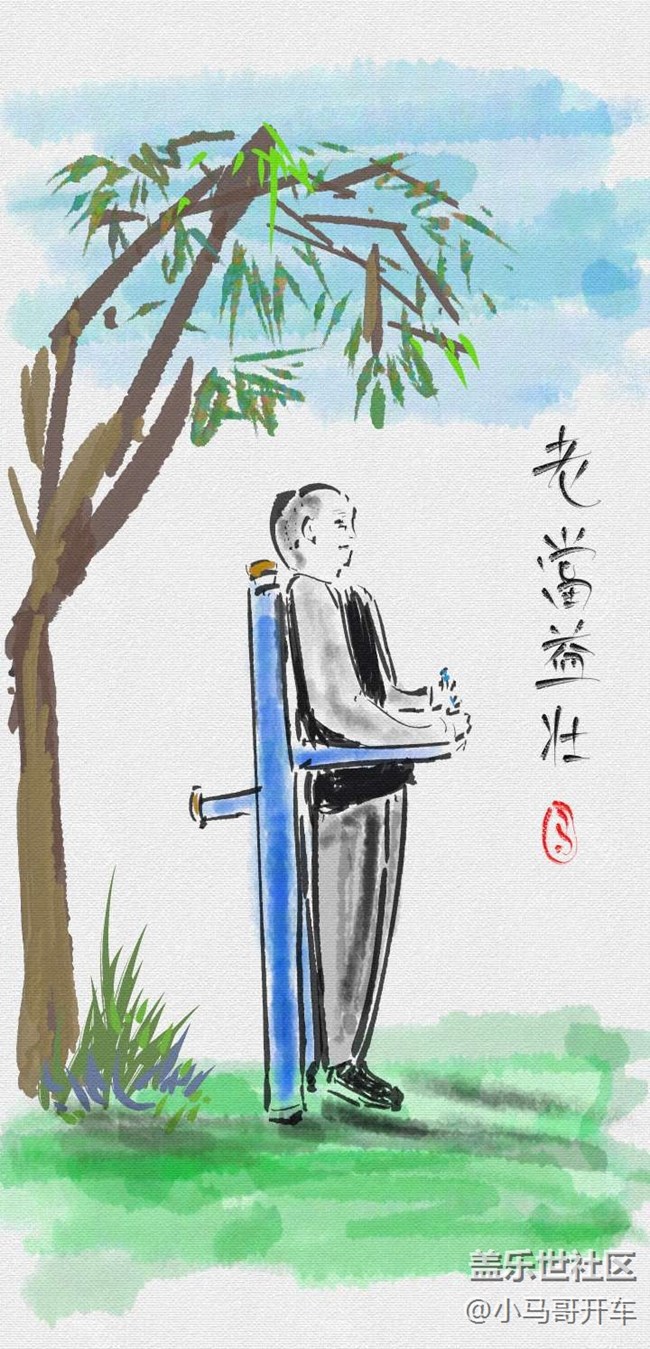 老當益壯
盖乐世社区
@小马哥开车